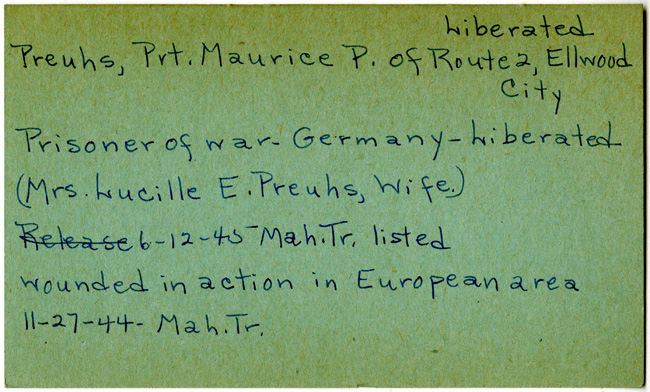 Liberated
Preuhs, Prt. Maurice P. of Route 2, Ellwood
City
Prisoner of war- Germany- Liberated
(Mrs. Lucille E. Preuhs, Wife.)
Release 6-12-45 Mah.Tr. listed
wounded in action in European area
11-27-44- Mah.Tr.